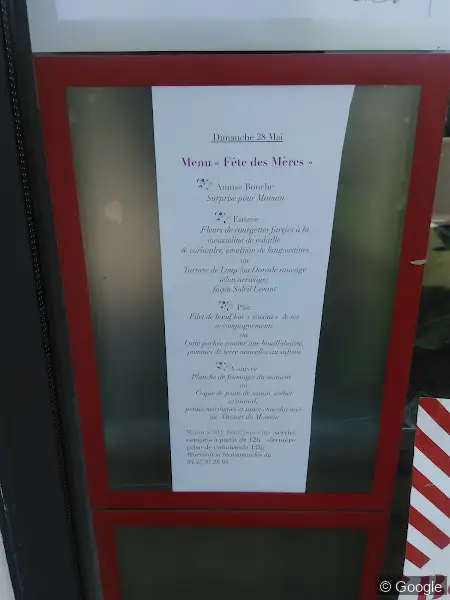 Dimanche 28 Mai
Menu « Fête des Mères »
Amuse Bouche
Surprise pour Maman
Entrée
Fleurs de courgettes farcies à la
mousseline de volaille
& coriandre, émulsion de langoustines
ou
Tartare de Loup (ou Dorade sauvage
selon arrivage)
façon Soleil Levant
Plat
Filet de bœuf bio « rossini » & ses
accompagnements
ou
Lotte pochée comme une bouillabaisse,
pommes de terre nouvelles au safran
A suivre
Planche de fromages du moment
ou
Coque de fruits de saison, sorbet
artisanal,
petites meringues et sauce
ou Dessert du Moment
Menu à (service
compris à partir de 12h dernière
prise de commande 14h)
Réservation recommandée au
© Google